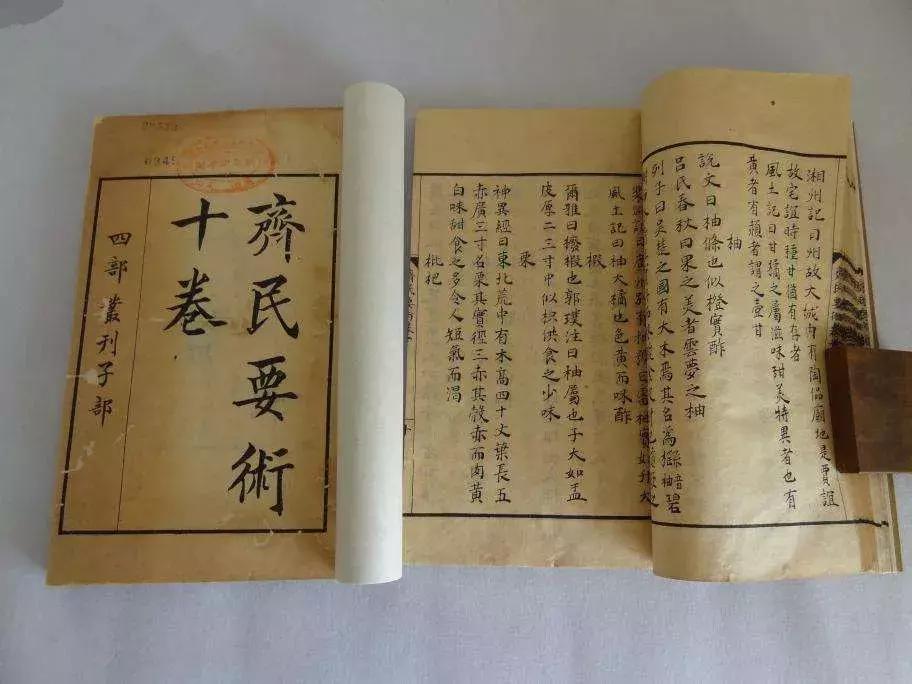 齊民要術
十卷
四部叢刊子部
湘州記曰州故大城內有陶侃廟地是賈誼
故宅誼時種甘猶有存者
風土記曰甘橘之屬滋味甜美特異者也有
黃者有頳者謂之壺甘
柚
說文曰柚條也似橙實酢
呂氏春秋曰果之美者雲夢之柚
列子曰吳楚之國有大木焉其名為櫾音柚碧
裴淵記曰廣州別有柚號曰雷柚實如升大
風土記曰柚大橘也色黃而味酢
椵
爾雅曰櫠椵也郭璞注曰柚屬也子大如盂
皮厚二三寸中似枳供食之少味
栗
神異經曰東北荒中有木高四十丈葉長五
赤廣三寸名栗其實徑三赤其殼赤而肉黃
白味甜食之多令人短氣而渴
枇杷